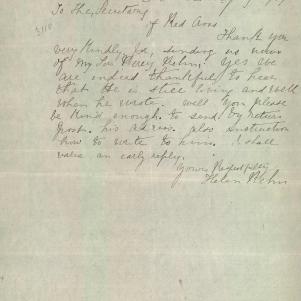 To The Secretary
of Red Cross
Thank you
very kindly for sending us news
of my Son Percy Rehn. Yes we
are indeed thankful to hear
that he is still living and well
when he wrote. Will you please
be kind enough to send by return
post. his adress. also instruction
how to write to him. I shall
value an early reply.
Yours Respectfully
Helen Rehn